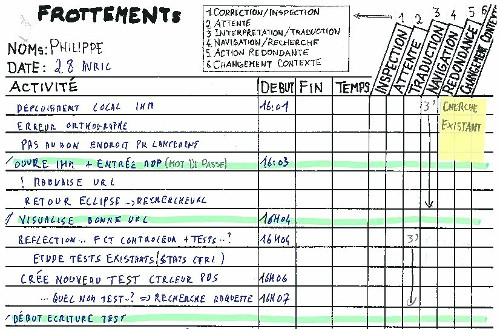 FROTTEMENTS
1 CORRECTION/INSPECTION
2 ATTENTE
3 INTERPRETATION/TRADUCTION
4 NAVIGATION/RECHERCHE
5 ACTION REDONDANTE
6 CHANGEMENT CONTEXTE
NOM: PHILIPPE
DATE: 28 AVRIL
1 2 3 4 5 6
ACTIVITÉ DEBUT FIN TEMPS INSPECTION ATTENTE TRADUCTION NAVIGATION REDONDANCE CHANGEMENT CONTEXTE
DEPLOIEMENT LOCAL IHM 16:01 3) CHERCHE
ERREUR ORTHOGRAPHE EXISTANT
PAS AU BON ENDROIT PR LANCEMENT
OUVRE IHM + ENTRÉE ADP (MOT DE PASSE) 16:03
! MAUVAISE URL
RETOUR ECLIPSE →
! VISUALISE BONNE URL 16H04
REFLECTION.. FCT CONTROLEUR + TESTS..? 16H04 3)
ETUDE TESTS EXISTANTS (STATS CFRI)
CRÉE NOUVEAU TEST CTRLEUR PDS 16H06
... QUEL NOM TEST..? => RECHERCHE MAQUETTE 16H07
! DÉBUT ECRITURE TEST